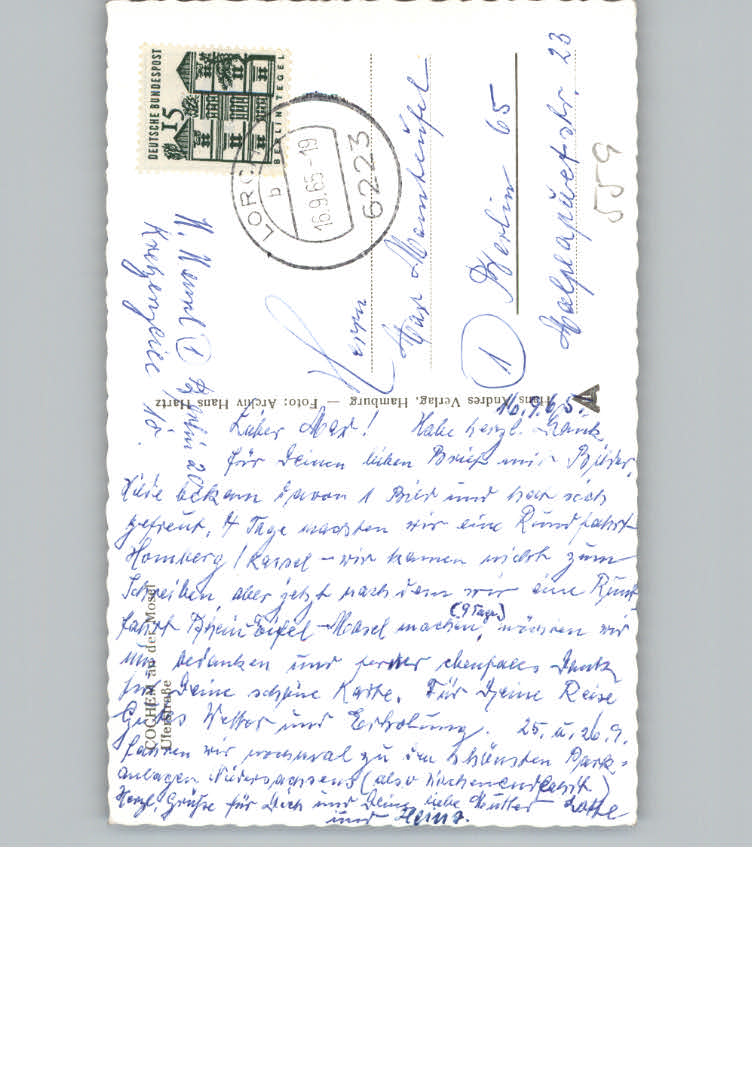 DEUTSCHE BUNDESPOST
15
BERLIN-TEGEL
LORCH
b
16.9.65-19
6223
Herrn
Max Manteufel
1 Berlin 65
Malplaquetstr. 23
559
H. Hensel 1 Berlin 20
Hans Andres Verlag, Hamburg — Foto: Archiv Hans Hartz
A
COCHEM an der Mosel
Uferstraße
16.9.65.
Lieber Max! Habe herzl. Dank
für Deinen lieben Brief mit Bilder.
bekam davon 1 Bild und hat sich
gefreut. 4 Tage machten wir eine Rundfahrt
Homberg / Kassel – wir kamen nicht zum
Schreiben aber jetzt nachdem wir eine Rund
fahrt Rhein-Eifel-Mosel machen (9 Tage), möchten wir
uns bedanken und ferner ebenfalls Dank
für Deine schöne Karte. Für Deine Reise
Gutes Wetter und Erholung. 25. u. 26.9.
fahren wir nochmal zu den schönsten Park-
anlagen Niedersachsens (also Wochenendfahrt)
Herzl. Grüße für Dich und Deine liebe Mutter Lotte
und Heinz.